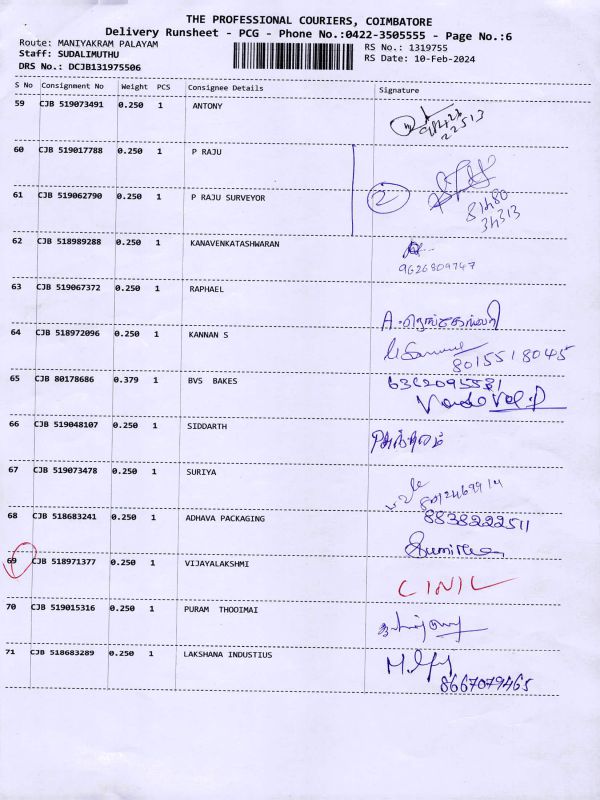 THE PROFESSIONAL COURIERS, COIMBATORE
Delivery Runsheet - PCG - Phone No.:0422-3505555 - Page No.:6
Route: MANIYAKRAM PALAYAM
RS No.: 1319755
Staff: SUDALIMUTHU
RS Date: 10-Feb-2024
DRS No.: DCJB131975506
S No Consignment No Weight PCS Consignee Details Signature
59 CJB 519073491 0.250 1 ANTONY
22513
60 CJB 519017788 0.250 1 P RAJU
61 CJB 519062790 0.250 1 P RAJU SURVEYOR 2
81480
34313
62 CJB 518989288 0.250 1 KANAVENKATASHWARAN
9626809747
63 CJB 519067372 0.250 1 RAPHAEL
64 CJB 518972096 0.250 1 KANNAN S
8015518045
65 CJB 80178686 0.379 1 BVS BAKES 6362095581
66 CJB 519048107 0.250 1 SIDDARTH
67 CJB 519073478 0.250 1 SURIYA
68 CJB 518683241 0.250 1 ADHAVA PACKAGING 8838222511
69 CJB 518971377 0.250 1 VIJAYALAKSHMI
70 CJB 519015316 0.250 1 PURAM THOOIMAI
71 CJB 518683289 0.250 1 LAKSHANA INDUSTIUS
8667079465